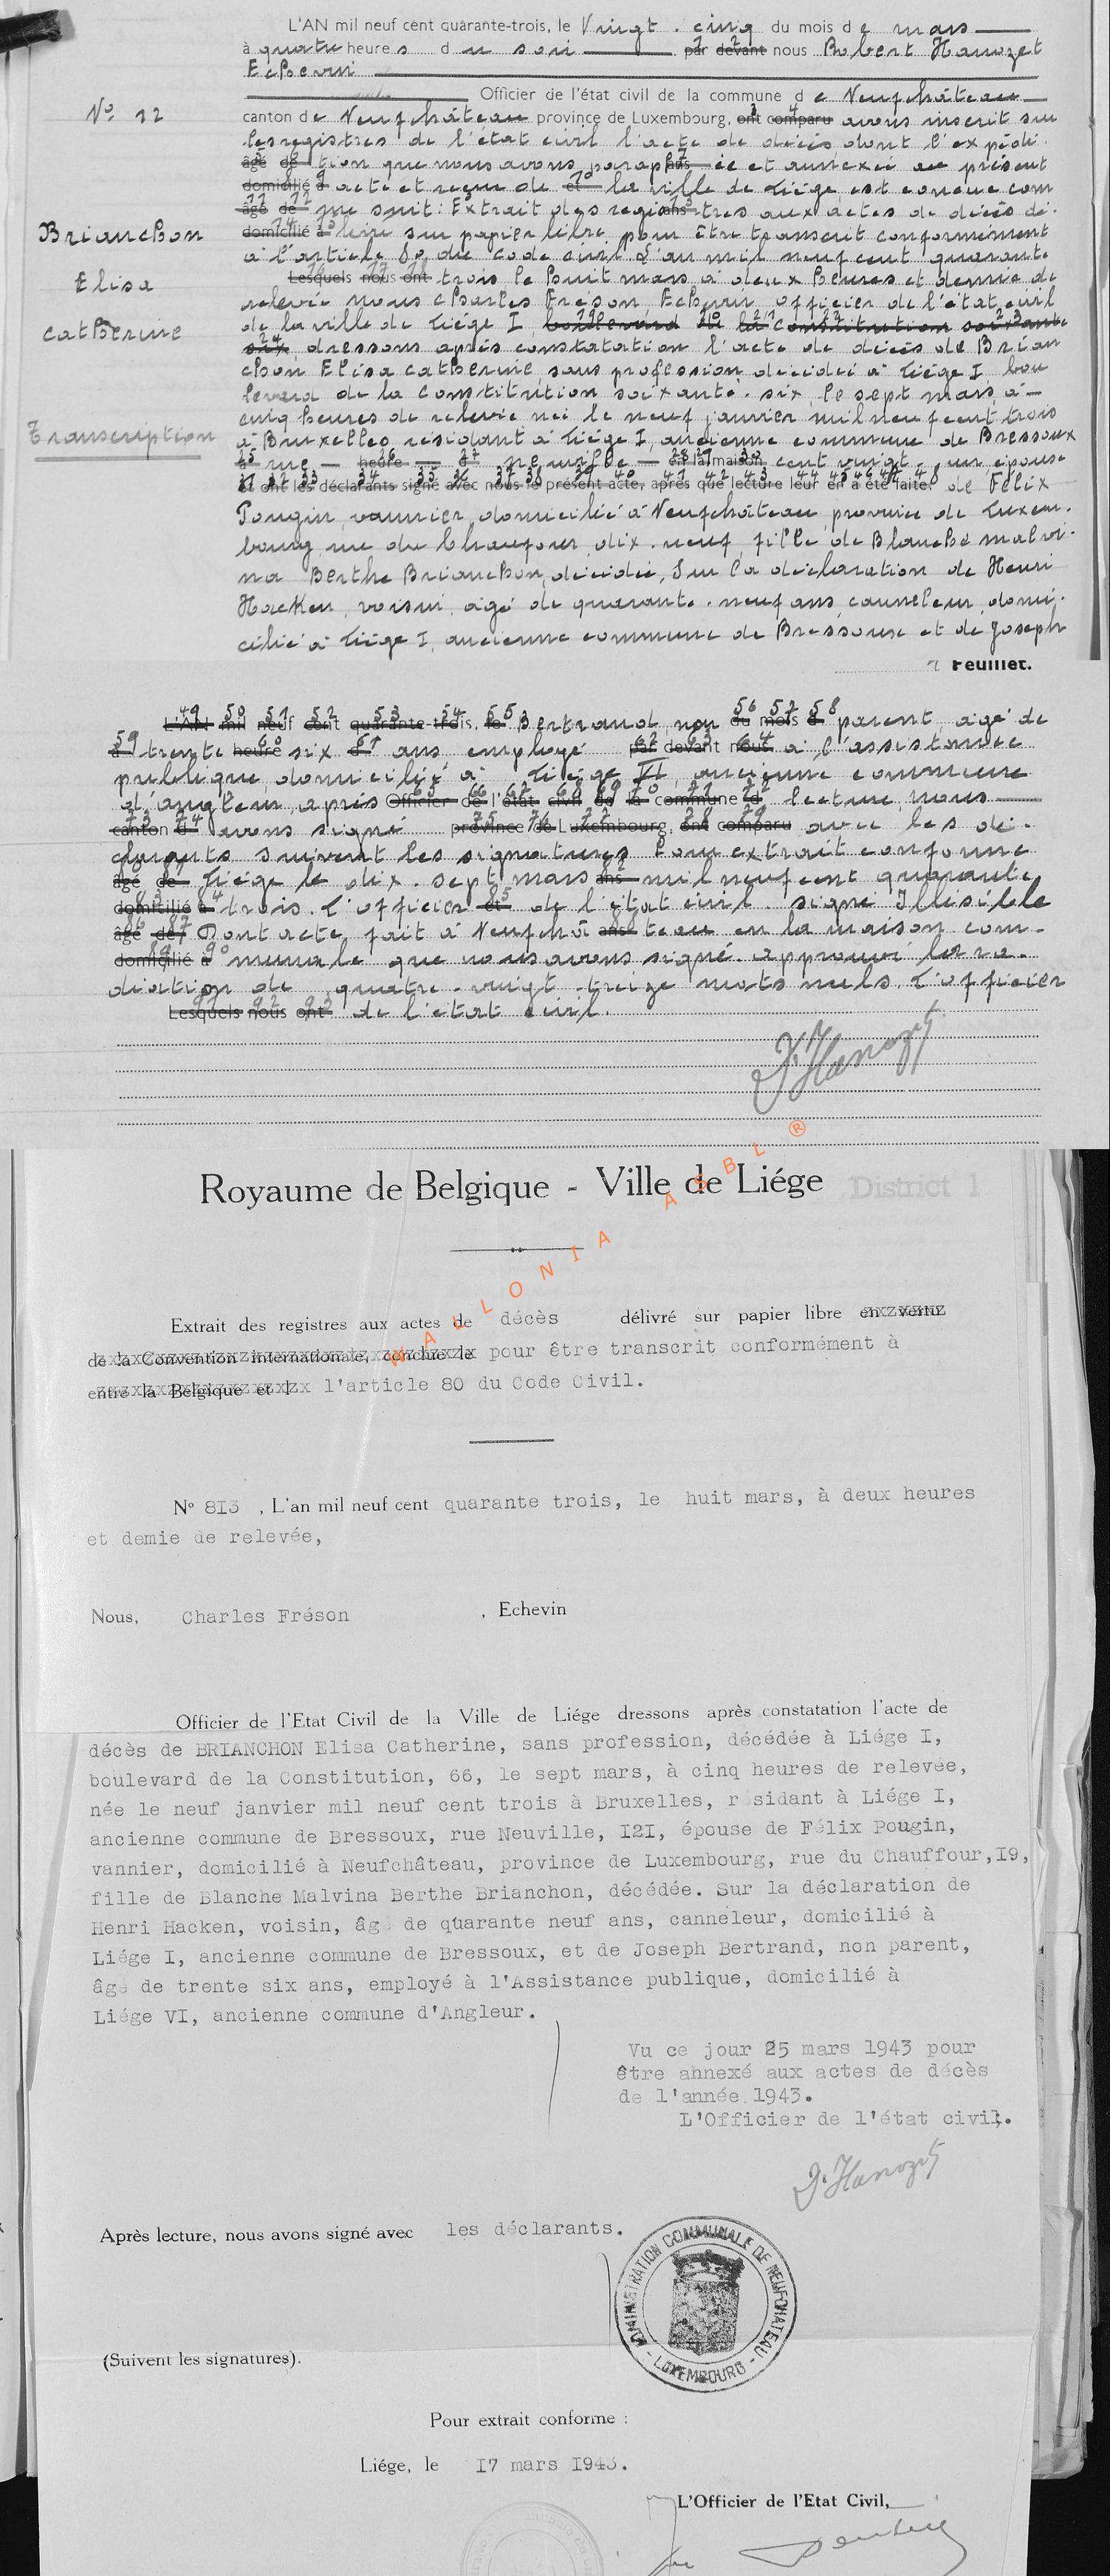 L'AN mil neuf cent quarante-trois, le Vingt. cinq du mois de mars
à quatre heures du soir par devant nous Robert Hanozet
Echevin
Officier de l'état civil de la commune de Neufchâteau
N° 12
canton de Neufchâteau province de Luxembourg, ont comparu avons inscrit sur
les registres de l'état civil l'acte de décès dont l'expédi.
âgé de tion que nous avons paraphée et annexée au présent
domicilié à acte et reçue de et la ville de Liége est conçue com
âgé de me suit: Extrait des registres aux actes de décès dé.
Brianchon
domicilié à livré sur papier libre pour être transcrit conformément
à l'article 80 du code civil L'an mil neuf cent quarante
Elisa
Lesquels nous ont trois le huit mars à deux heures et demie de
relevée nous Charles Freson Echevin, officier de l'état civil
Catherine
de la ville de Liége I boulevard de la Constitution soixante
six dressons après constatation l'acte de décès de Brian
chon Elisa Catherine sans profession, décédée à Liége I bou
levard de la Constitution soixante. six, le sept mars, à
cinq heures de relevée née le neuf janvier mil neuf cent trois
Transcription
à Bruxelles, résidant à Liége I, ancienne commune de Bressoux
à rue heure d neuville en la maison cent vingt. un épouse
et ont les déclarants signé avec nous le présent acte, après que lecture leur en a été faite. de Félix
Pougin, vannier, domicilié à Neufchâteau, province de Luxem.
bourg, rue du Chaufour, dix. neuf, fille de Blanche malvi.
na Berthe Brianchon, décédée, Sur la déclaration de Henri
Hacken, voisin, âgé de quarante. neuf ans canneleur, domi.
cilié à Liége I, ancienne commune de Bressoux et de Joseph
Feuillet.
L'AN mil neuf cent quarante-trois, le Bertrand, non du mois d parent, âgé de
à trente heure six d ans employé par devant nous à l'assistance
publique, domicilié à Liége VI, ancienne commune
d'angleur, après Officier de l'état civil de la commune d lecture, nous
canton d avons signé province de Luxembourg, ont comparu avec les dé.
clarants Suivent les signatures Pour extrait conforme
âgé de Liége le dix. sept mars ans mil neuf cent quarante
domicilié à trois. L'officier et de l'état civil. signé Illisible
âgé de Dont acte, fait à Neufchâ ans teau en la maison com.
domicilié à munale que nous avons signé. approuvé la ra.
diation de quatre. vingt. treize mots nuls. L'officier
Lesquels nous ont de l'état civil.
R. Hanozet
Royaume de Belgique - Ville de Liége District 1
WALLONIA ASBL ®
Extrait des registres aux actes de décès délivré sur papier libre en vertu
de la Convention internationale, conclue le pour être transcrit conformément à
entre la Belgique et l l'article 80 du Code Civil.
N° 813 , L'an mil neuf cent quarante trois, le huit mars, à deux heures
et demie de relevée,
Nous, Charles Fréson , Echevin
Officier de l'Etat Civil de la Ville de Liége dressons après constatation l'acte de
décès de BRIANCHON Elisa Catherine, sans profession, décédée à Liége I,
boulevard de la Constitution, 66, le sept mars, à cinq heures de relevée,
née le neuf janvier mil neuf cent trois à Bruxelles, résidant à Liége I,
ancienne commune de Bressoux, rue Neuville, I2I, épouse de Félix Pougin,
vannier, domicilié à Neufchâteau, province de Luxembourg, rue du Chauffour,I9,
fille de Blanche Malvina Berthe Brianchon, décédée. Sur la déclaration de
Henri Hacken, voisin, âgé de quarante neuf ans, canneleur, domicilié à
Liége I, ancienne commune de Bressoux, et de Joseph Bertrand, non parent,
âgé de trente six ans, employé à l'Assistance publique, domicilié à
Liége VI, ancienne commune d'Angleur.
Vu ce jour 25 mars 1943 pour
être annexé aux actes de décès
de l'année 1943.
L'Officier de l'état civil.
R. Hanozet
Après lecture, nous avons signé avec les déclarants.
ADMINISTRATION COMMUNALE DE NEUFCHATEAU - LUXEMBOURG -
(Suivent les signatures).
Pour extrait conforme :
Liége, le I7 mars 1943.
L'Officier de l'Etat Civil,